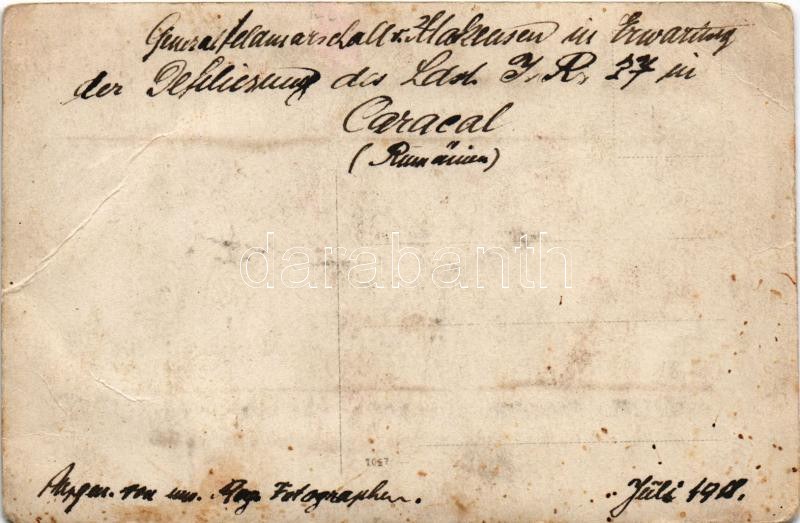 Generalfeldmarschall v. Makensen in Erwartung
der Defilierung des Ldst. I. R. 27 in
Caracal
(Rumänien)
darabanth
Aufgen. von uns. Reg. Fotographen.
Juli 1918.